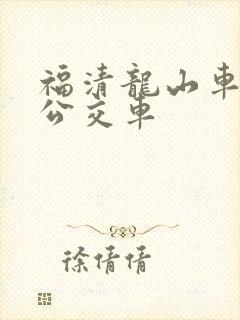 福清龍山車
公交車
徐倩倩